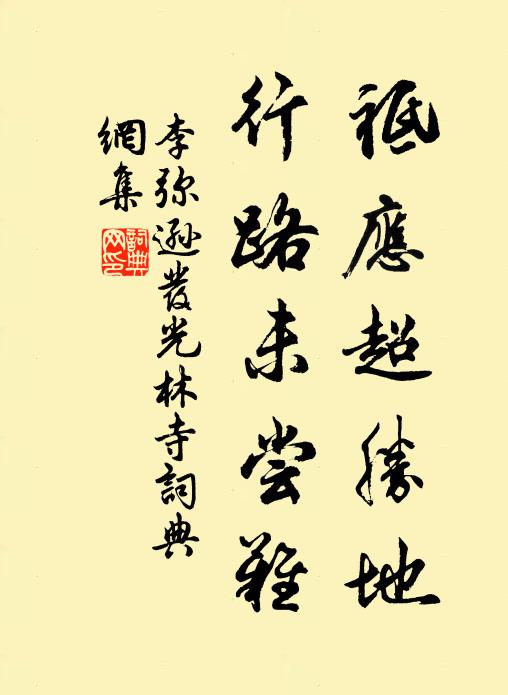 祗應超勝地
行路未尝難
李弥遜發光林寺詞典
網集
詞典网印